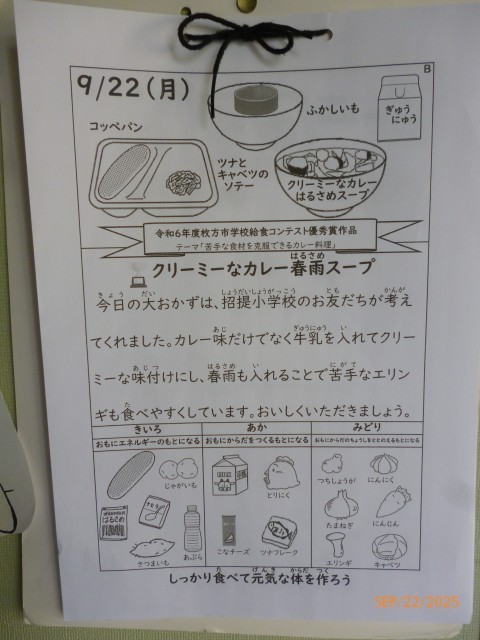 B
9/22(月)
コッペパン
ふかしいも
ぎゅう
にゅう
ツナと
キャベツの
ソテー
クリーミーなカレー
はるさめスープ
令和6年度枚方市学校給食コンテスト優秀賞作品
テーマ「苦手な食材を克服できるカレー料理」
クリーミーなカレー春雨スープ
今日の大おかずは、招提小学校のお友だちが考え
てくれました。カレー味だけでなく牛乳を入れてクリー
ミーな味付けにし、春雨も入れることで苦手なエリン
ギも食べやすくしています。おいしくいただきましょう。
きいろ
おもにエネルギーのもとになる
あか
おもにからだをつくるもとになる
みどり
おもにからだのちょうしをととのえるもとになる
じゃがいも
はるさめ
さつまいも
あぶら
とりにく
こなチーズ
ツナフレーク
つちしょうが
にんにく
たまねぎ
にんじん
エリンギ
キャベツ
しっかり食べて元気な体を作ろう
SEP/22/2025